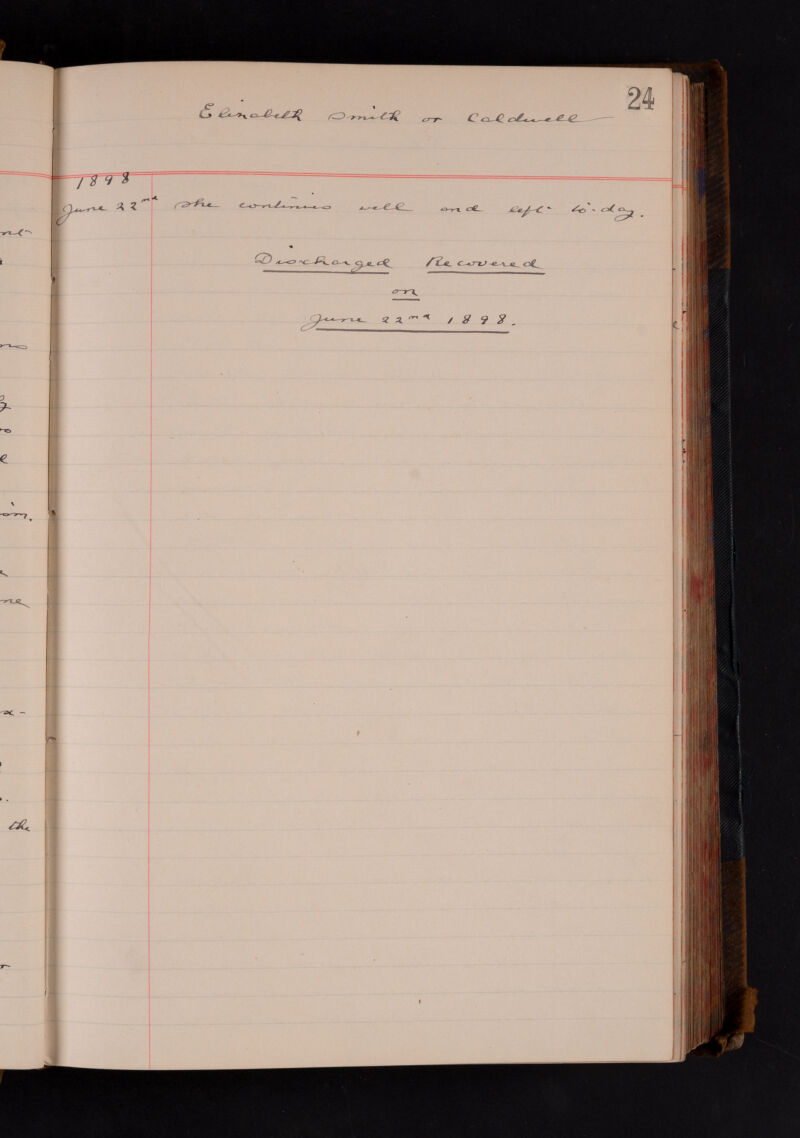 24
Elizabeth Smith or Caldwell
1898
June 22nd She continues well and left to-day.
Discharged Recovered
on
June 22nd 1898.
the